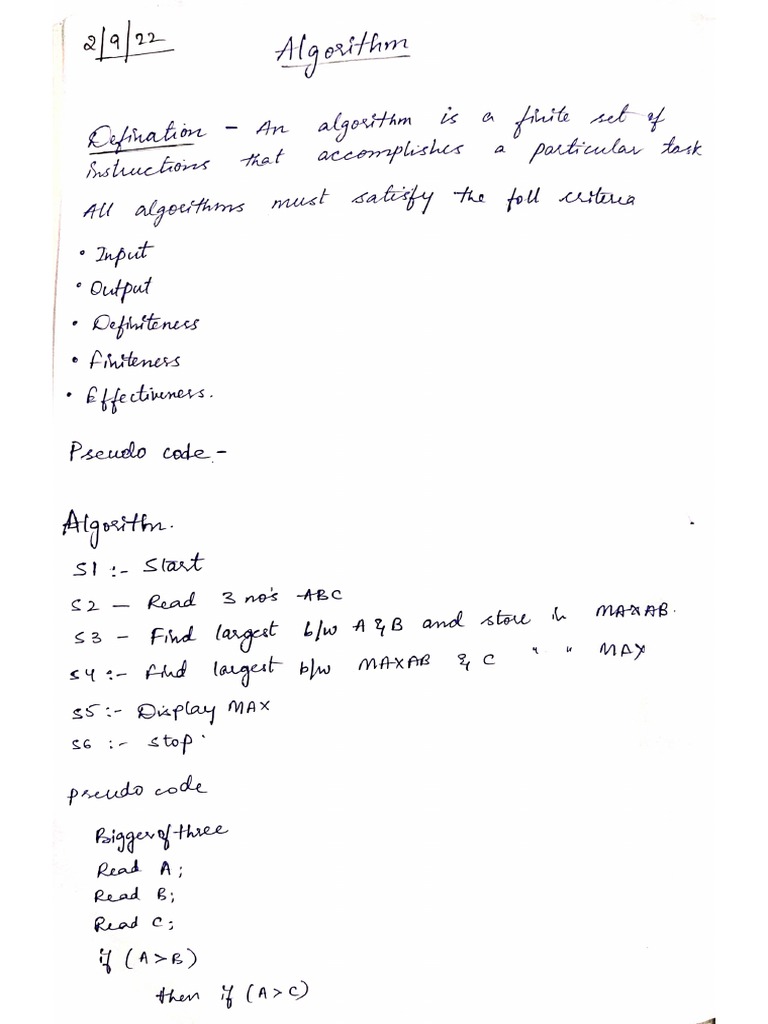 2/9/22
Algorithm
Defination - An algorithm is a finite set of
instructions that accomplishes a particular task
All algorithms must satisfy the foll criteria
• Input
• Output
• Definiteness
• finiteness
• Effectiveness.
Pseudo code -
Algorithn.
S1 :- Start
S2 - Read 3 no's ABC
S3 - Find largest b/w A & B and store in MAXAB.
S4 :- find largest b/w MAXAB & C " " MAX
S5 :- Display MAX
S6 :- Stop.
pseudo code
Bigger of three
Read A;
Read B;
Read C;
if (A>B)
then if (A>C)